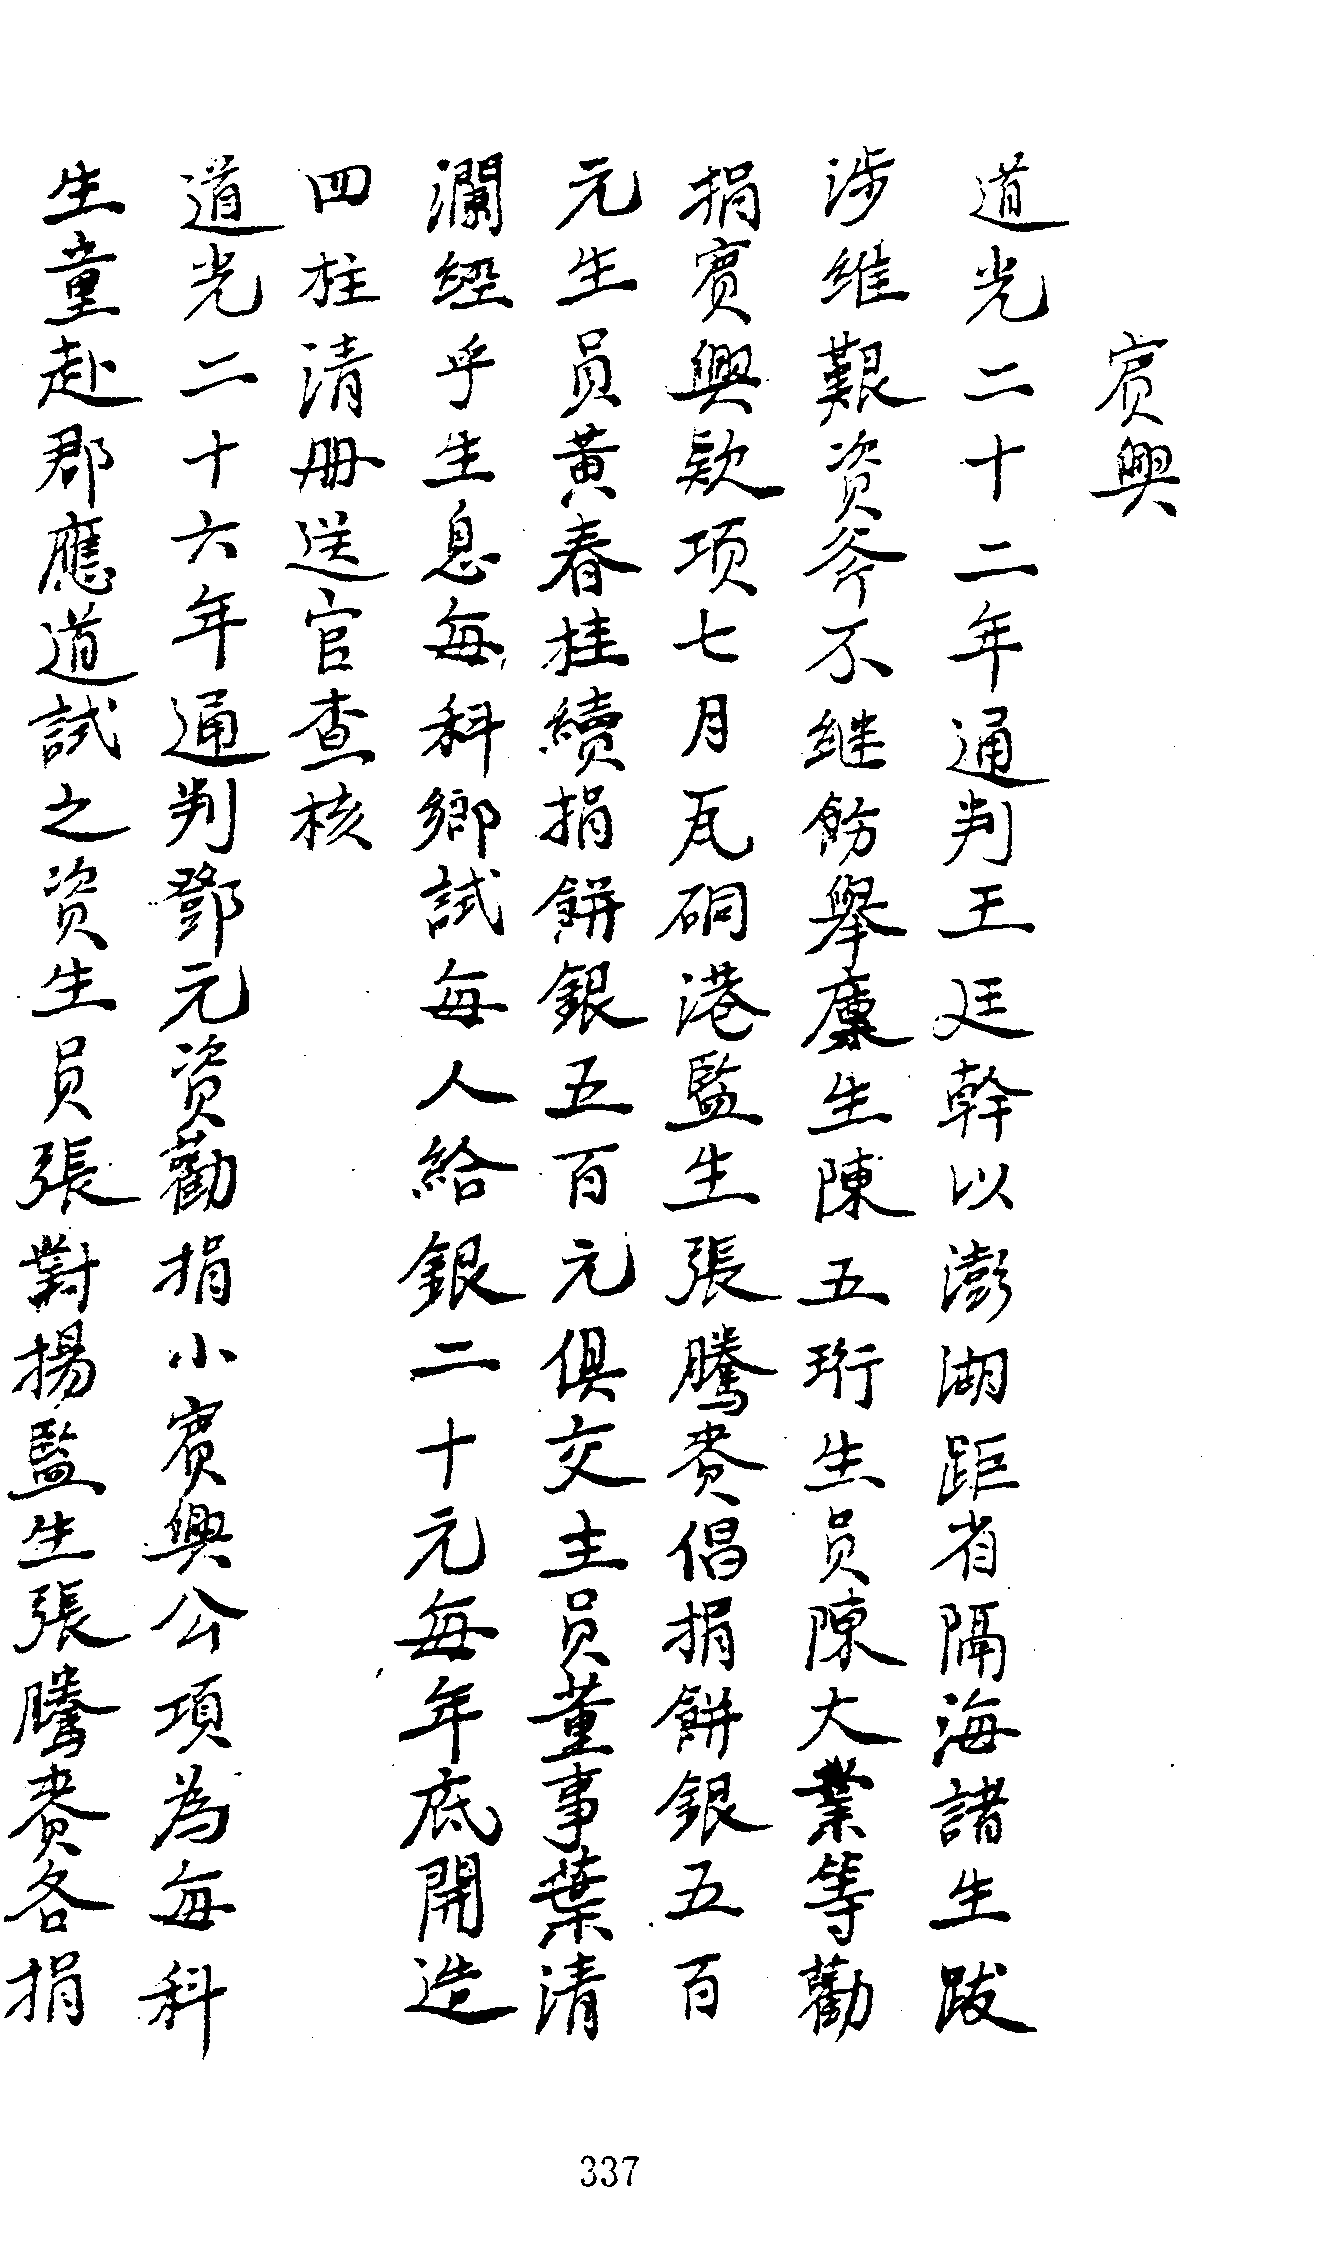 賓興
道光二十二年通判王廷幹以澎湖距省隔海諸生跋
涉維艱資斧不继飭舉廩生陳五珩生員陳大業等勸
捐賓興款項七月瓦硐港監生張騰賚倡捐餅銀五百
元生員黃春桂續捐餅銀五百元俱交主員董事葉清
瀾經乎生息每科鄉試每人給銀二十元每年底開造
四柱清册送官查核
道光二十六年通判鄧元資勸捐小賓興公項為每科
生童赴郡應道試之資生員張對揚監生張騰賚各捐
337